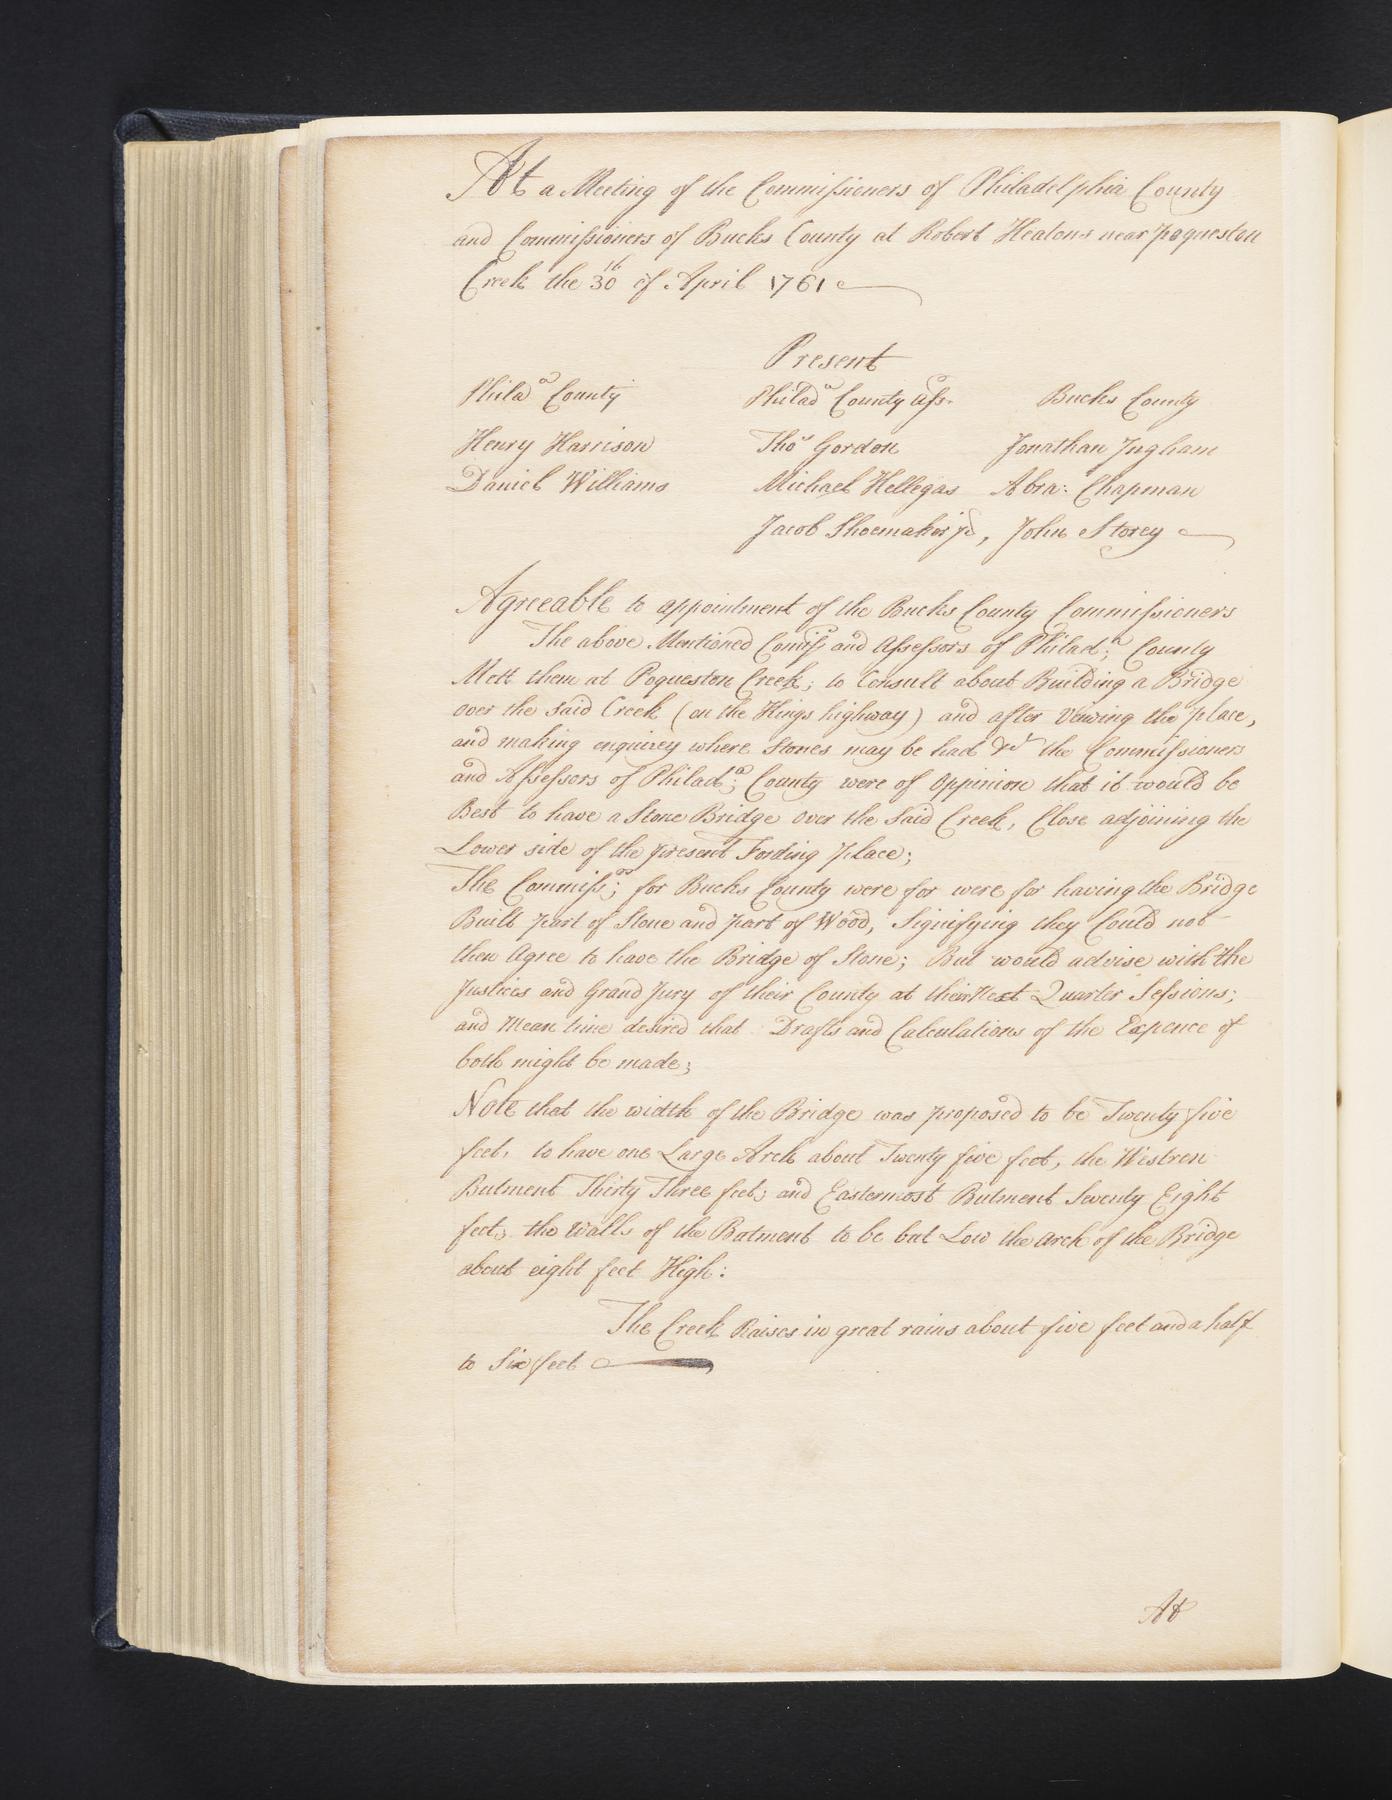 At a Meeting of the Commissioners of Philadelphia County
and Commissioners of Bucks County at Robert Heatons near Poqueston
Creek the 30th of April 1761
Present
Philad.a County
Philad.a County Ass.rs
Bucks County
Henry Harrison
Tho.s Gordon
Jonathan Ingham
Daniel Williams
Michael Hellegas
Abra: Chapman
Jacob Shoemaker Jr,
John Storey
Agreeable to appointment of the Bucks County Commissioners
The above Mentioned Comiss.rs and Assessors of Philad;a County
Mett them at Poqueston Creek; to Consult about Building a Bridge
over the said Creek (on the Kings highway) and after Vewing the place,
and making enquirey where Stones may be had &c.a the Commissioners
and Assessors of Philad;a County were of Oppinion that it would be
Best to have a Stone Bridge over the Said Creek, Close adjoining the
Lower side of the present Fording place;
The Commiss;rs for Bucks County were for were for having the Bridge
Built part of Stone and part of Wood, Signifying they Could not
then Agree to have the Bridge of Stone; But would advise with the
Justices and Grand Jury of their County at their Next Quarter Sessions;
and Mean time desired that Drafts and Calculations of the Expence of
both might be made;
Note that the width of the Bridge was proposed to be Twenty five
feet, to have one Large Arch about Twenty five feet, the Westren
Butment Thirty Three feet; and Eastermost Butment Seventy Eight
feet, the Walls of the Butment to be but Low the Arch of the Bridge
about eight feet High:
The Creek Raises in great rains about five feet and a half
to Six feet
At